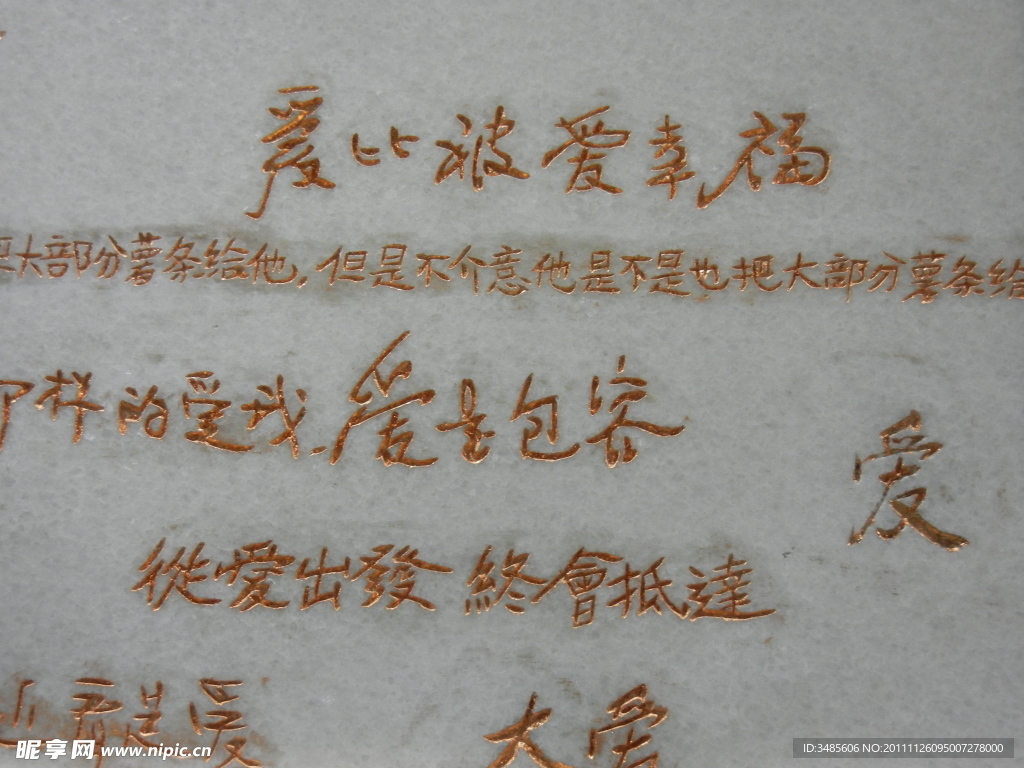 爱比被爱幸福
把大部分薯条给他,但是不介意他是不是也把大部分薯条给
那样的爱我.爱是包容
爱
從愛出發 終會抵達
爱
大爱
昵享网 www.nipic.cn
ID:3485606 NO:20111126095007278000